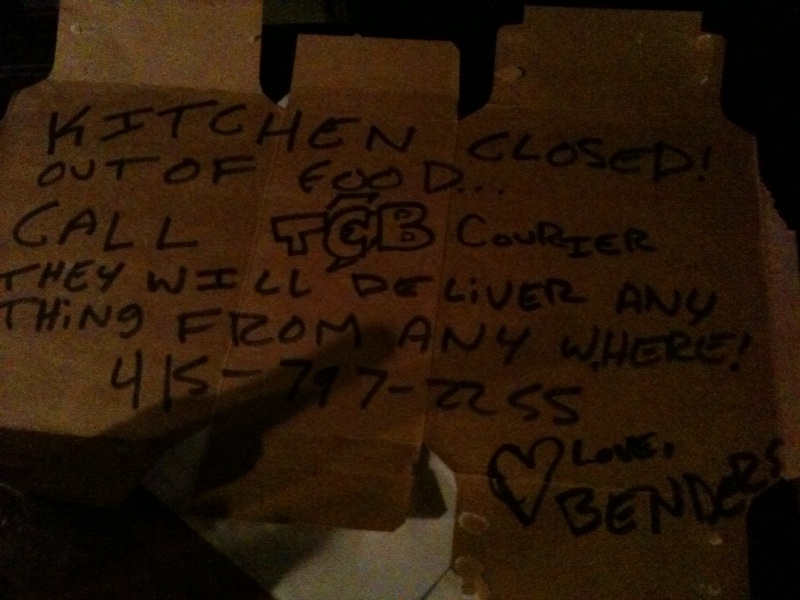 KITCHEN CLOSED!
OUT OF FOOD...
CALL TCB COURIER
THEY WILL DELIVER ANY
THING FROM ANY WHERE!
415-797-2255
LOVE,
BENDERS